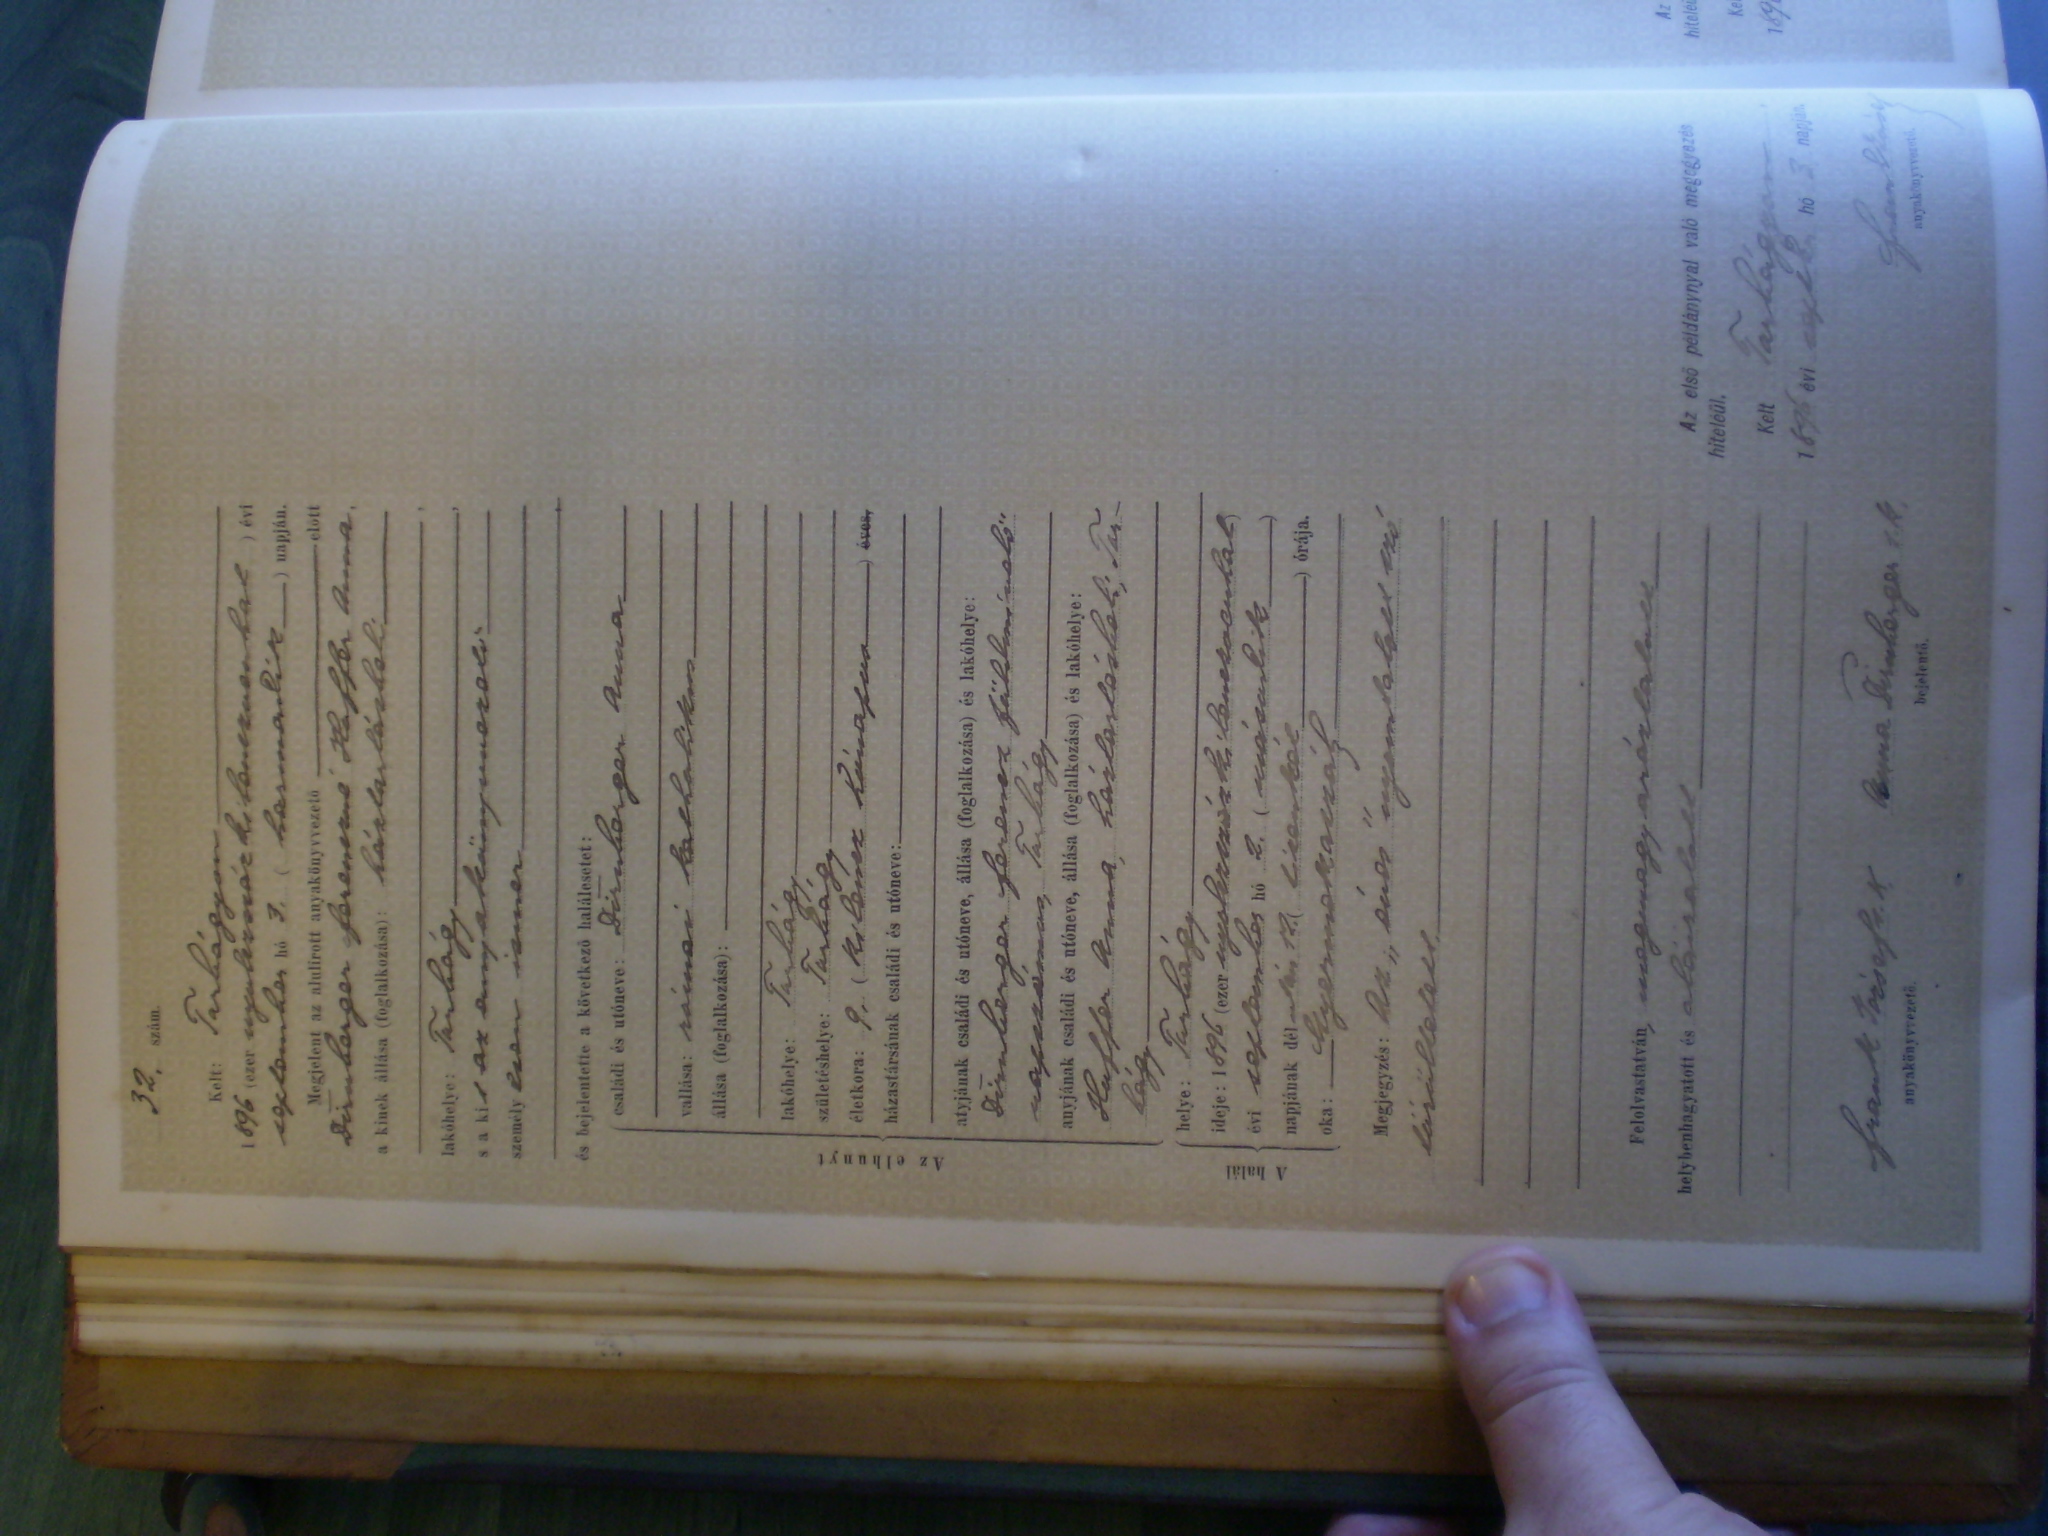 32. szám.
Kelt: Tarhágyon
1896 (ezer nyolczszázkilenczvenhat) évi
september hó 3. (harmadik) napján.
Megjelent az alulirott anyakönyvezető előtt
Dirnberger Ferenczné Haffer Anna,
a kinek állása (foglalkozása): háztartásbeli
lakóhelye:
s a kit az anyakönyvvezető
személyesen ismer
és bejelentette a következő halálesetet:
Az elhunyt
családi és utóneve: Dirnberger Anna
vallása: római katholikus
állása (foglalkozása):
lakóhelye:
születéshelye:
életkora: 9. (kilencz hónapos) éves,
házastársának családi és utóneve:
atyjának családi és utóneve, állása (foglalkozása) és lakóhelye:
Dirnberger Ferencz földmívelő
napszámos,
anyjának családi és utóneve, állása (foglalkozása) és lakóhelye:
Haffer Anna, háztartásbeli,
A halál
helye:
ideje: 1896 (ezer nyolczszázkilenczvenhat)
évi september hó 2. (második)
napjának dél után 12. (tizenkét) órája.
oka:
Megjegyzés: Az „éves" nyomtatott szó
töröltetett.
Felolvastatván, megmagyaráztatván
helybenhagyatott és aláiratott
Frank József s. k. Anna Dirnberger s. k.
anyakönyvvezető. bejelentő.
Az első példánynyal való megegyezés
hiteléül.
Kelt
1896 évi sept. hó 3 napján.
anyakönyvvezető.
Az
hiteléü
Kel
189